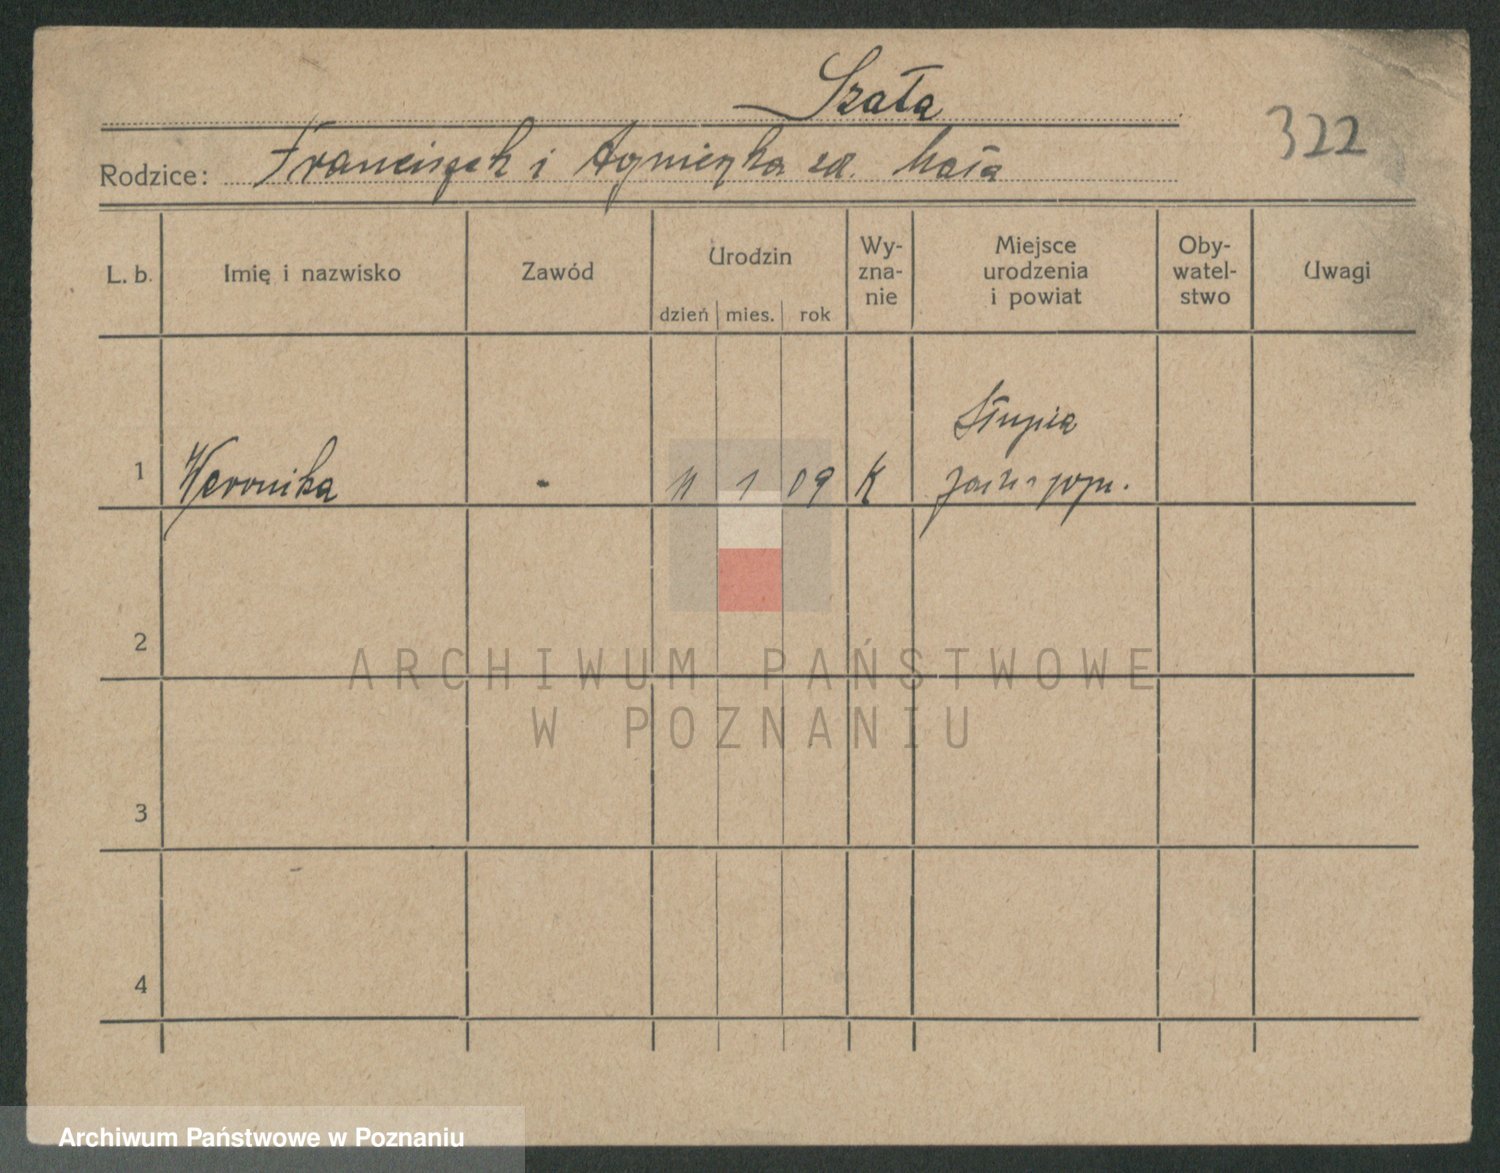 Szała
322
Rodzice: Franciszek i Agnieszka zd. Mała
L. b. Imię i nazwisko Zawód Urodzin dzień mies. rok Wy-zna-nie Miejsce urodzenia i powiat Oby-watel-stwo Uwagi
Słupia
1 Weronika - 11 1 09 K
2
ARCHIWUM PAŃSTWOWE
W POZNANIU
3
4
Archiwum Państwowe w Poznaniu